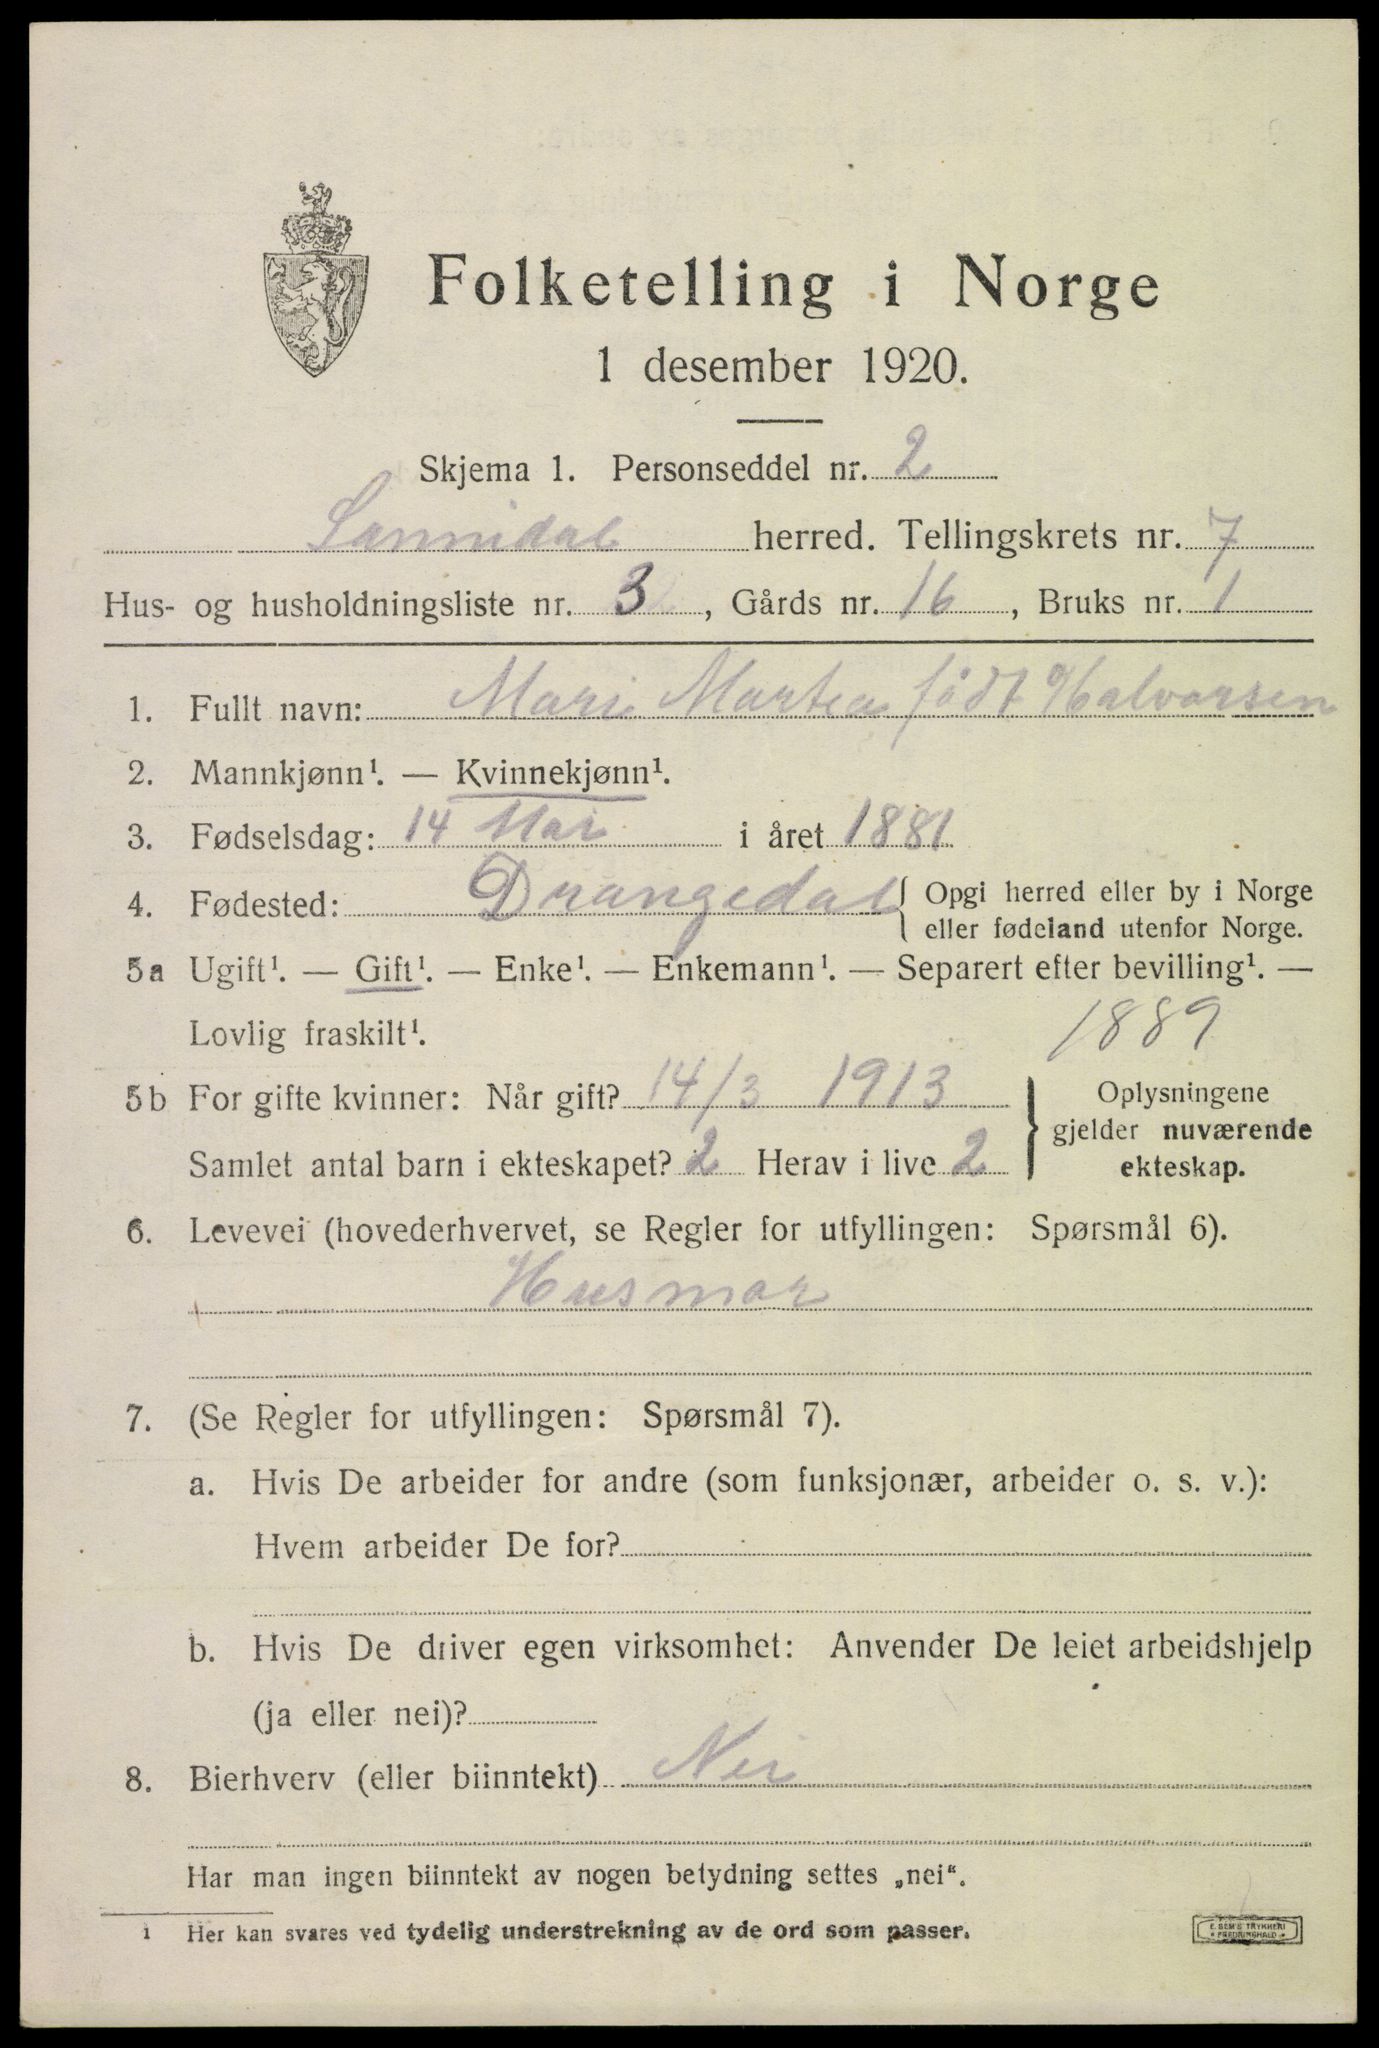 Folketelling i Norge
1 desember 1920.
Skjema 1. Personseddel nr. 2
Sannidal herred. Tellingskrets nr. 7
Hus- og husholdningsliste nr. 3, Gårds nr. 16, Bruks nr. 1
1. Fullt navn: Mari Martea født Halvorsen
2. Mannkjønn¹. — Kvinnekjønn¹.
3. Fødselsdag: 14 Mai i året 1881
4. Fødested: Drangedal { Opgi herred eller by i Norge
eller fødeland utenfor Norge.
5a Ugift¹. — Gift¹. — Enke¹. — Enkemann¹. — Separert efter bevilling¹. —
Lovlig fraskilt¹. 1889
5b For gifte kvinner: Når gift? 14/3 1913 } Oplysningene
gjelder nuværende
Samlet antal barn i ekteskapet? 2 Herav i live 2 ekteskap.
6. Levevei (hovederhvervet, se Regler for utfyllingen: Spørsmål 6).
Husmor
7. (Se Regler for utfyllingen: Spørsmål 7).
a. Hvis De arbeider for andre (som funksjonær, arbeider o. s. v.):
Hvem arbeider De for?
b. Hvis De driver egen virksomhet: Anvender De leiet arbeidshjelp
(ja eller nei)?
8. Bierhverv (eller biinntekt) Nei
Har man ingen biinntekt av nogen betydning settes „nei“.
1 Her kan svares ved tydelig understrekning av de ord som passer.
E. SEM'S TRYKKERI
FREDRIKSHALD